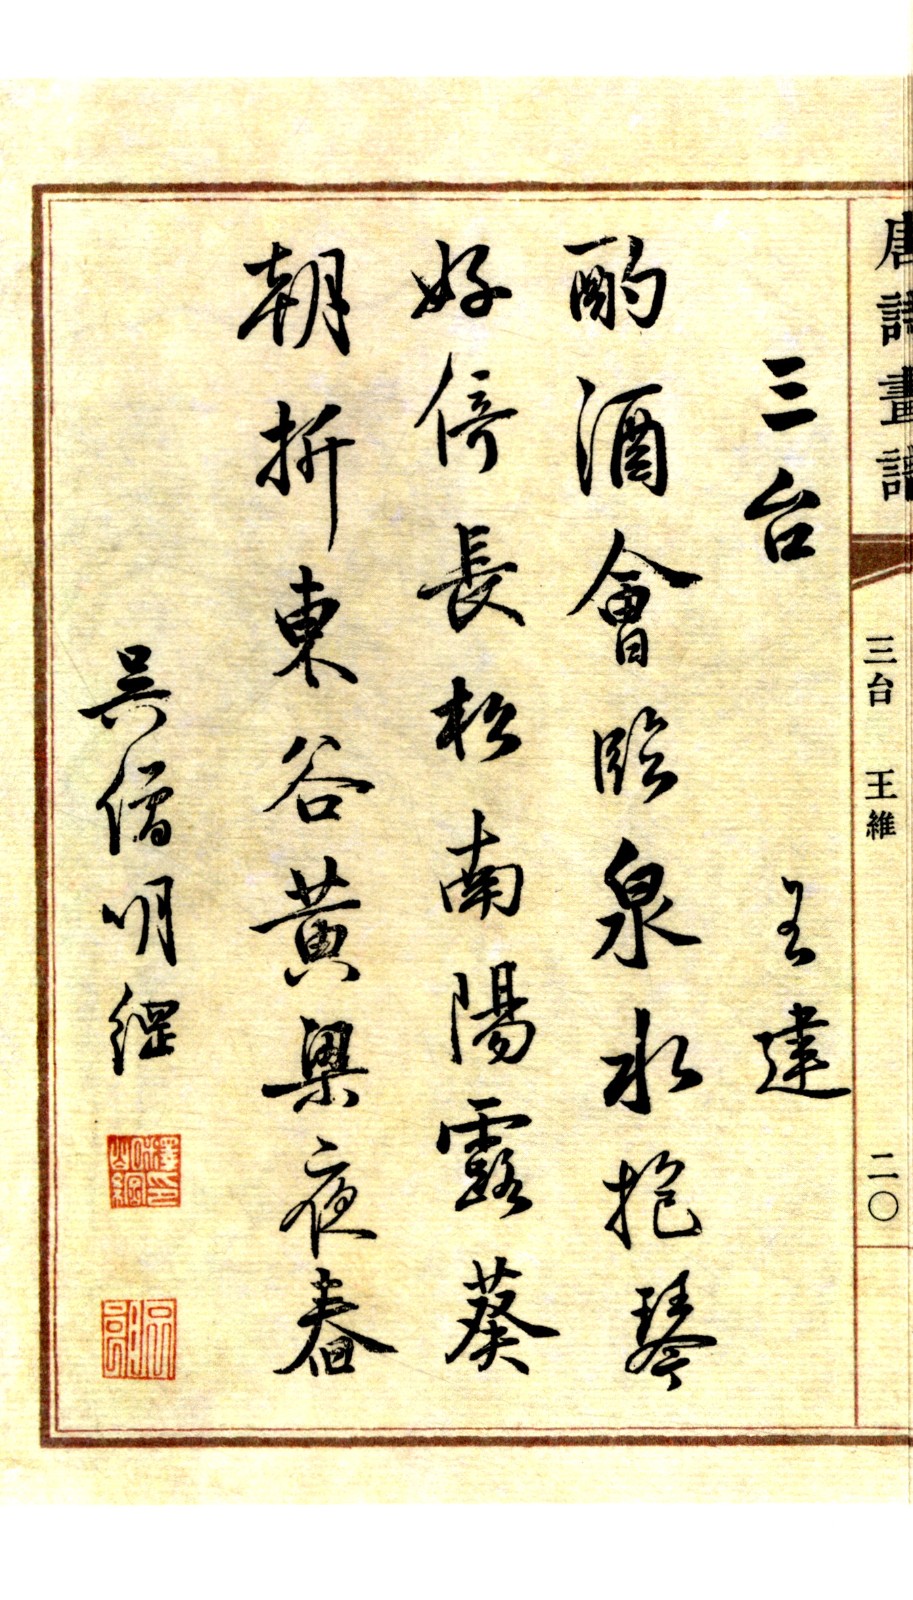 唐詩畫譜
三台 王維
二〇
三台 王建
酌酒會臨泉水抱琴
好倚長松南陽露葵
朝折東谷黃粱夜舂
吳僧明綱